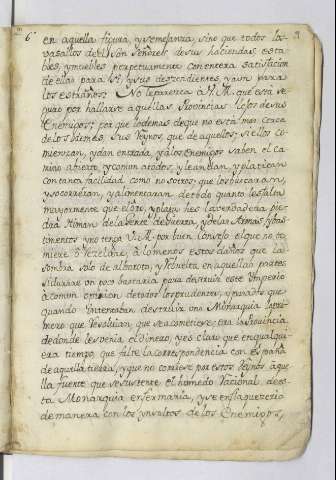 6
en aquella figura, y semejanza, sino que todos los
vasallos de el son señores de sus haciendas, esta
bles, y muebles perpetuamente con entera satisfacion
de ellas para sí, y sus descendientes, y aun para
los estraños; No le parezca á V. M. que está se
guro por hallarse aquellas Provincias lejos de sus
Enemigos; por que lo demas de que no está mas cerca
de los demás sus Reynos, que de aquellos; si ellos co
mienzan, y dan entrada, y á los Enemigos saben el ca
mino abierto, y comun a todos, y le andan, y platican
con tanta facilidad como nosotros; que los buscaran,
y socorreran, y alimentaran, de todo quanto les falta
mayormente que el oro, y plata, es la verdadera pie
dra Himan de la gente de Guerra, y de las Armas, y bas
timentos y no tenga V. M. por buen consejo el que no te
miere ó rezelare, á lo menos estos daños que la
sombra solo de alboroto, y rebuelta en aquellas partes
si durase un poco bastaria para destruir este Imperio
á comun opinion de todos los prudentes, y mirados que
quando intentaban destruir una Monarquia lo pri
mero que resolvian, que se acometiese era la Provincia
de donde les venia el dinero, y es claro que en qualqui
era tiempo que falte la correspondencia con españa
de aquella tierra, y que no corriese por estos Reynos aque
lla fuente que se sustente el humedo Racional de es
ta Monarquia enfermaria, y se enflaqueceria
de manera con los ynsultos de los Enemigos,